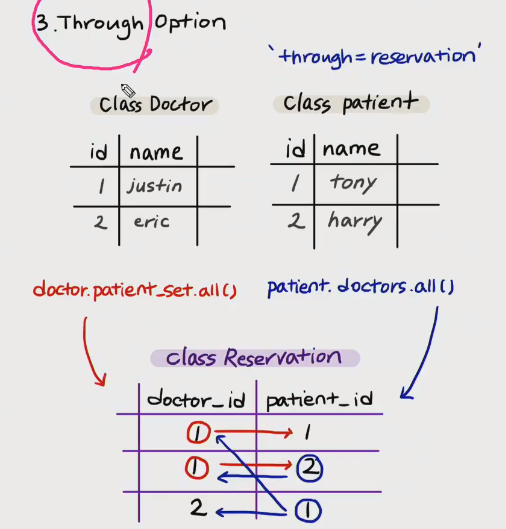 3.Through Option
`through=reservation'
class Doctor
class patient
id name
1 justin
2 eric
id name
1 tony
2 harry
doctor.patient_set.all()
patient.doctors.all()
class Reservation
doctor_id patient_id
1 1
1 2
2 1